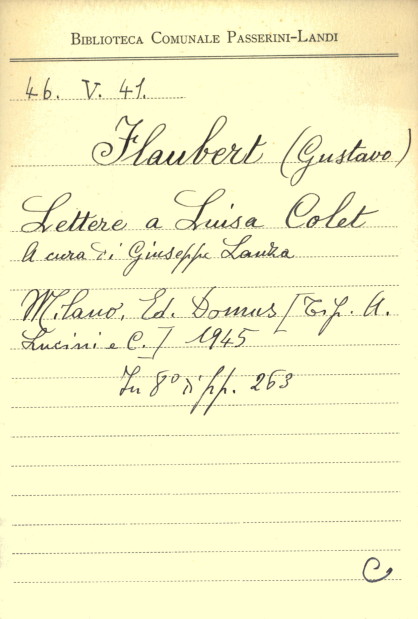 BIBLIOTECA COMUNALE PASSERINI-LANDI
46. V. 41.
Flaubert (Gustavo)
Lettere a Luisa Colet
A cura di Giuseppe Lanza
Milano, Ed. Domus [Tip. A.
Lucini e C.] 1945
In 8° di pp. 263
C